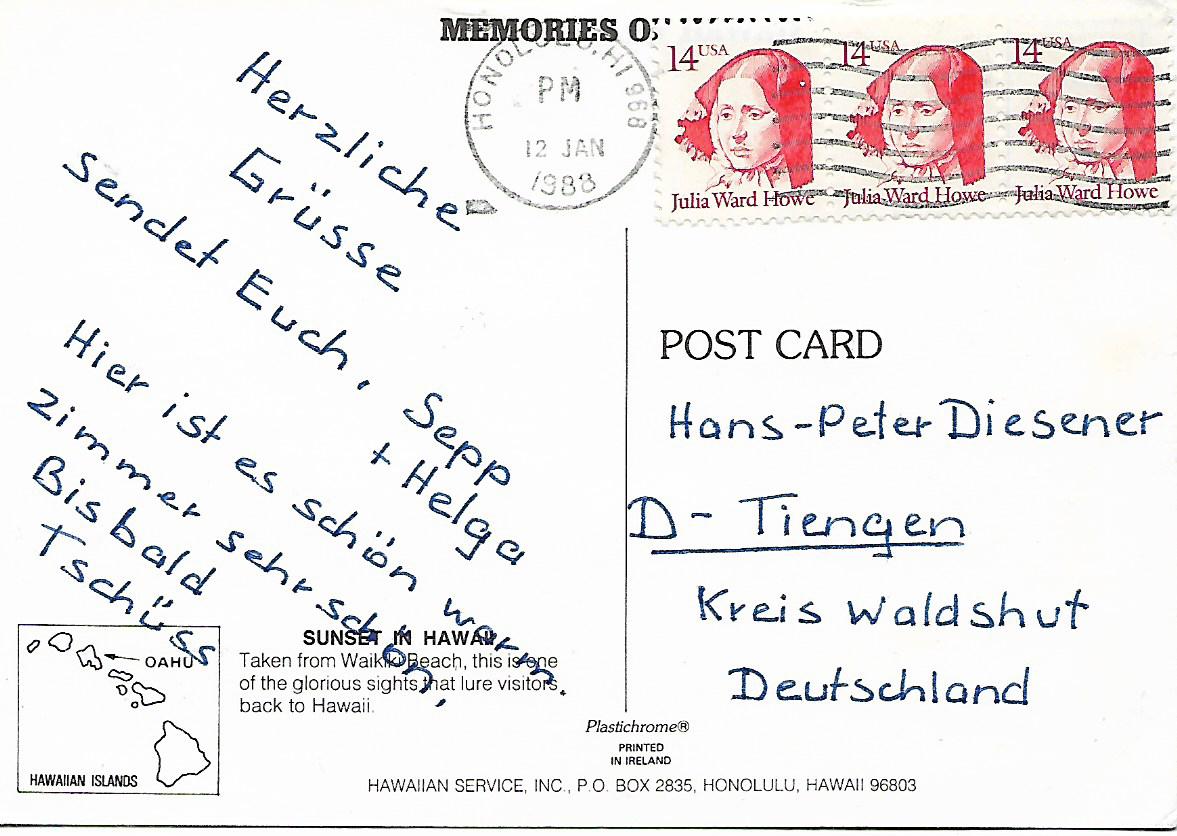 MEMORIES O
HONOLULU, HI 968
PM
12 JAN
1988
14 USA
Julia Ward Howe
14 USA
Julia Ward Howe
14 USA
Julia Ward Howe
Herzliche
Grüsse
Sendet Euch,
Sepp
+ Helga
Hier ist es schön warm.
Zimmer sehr schön,
Bis bald
Tschüss
POST CARD
Hans-Peter Diesener
D- Tiengen
Kreis Waldshut
Deutschland
OAHU
HAWAIIAN ISLANDS
SUNSET IN HAWAII
Taken from Waikiki Beach, this is one
of the glorious sights that lure visitors
back to Hawaii.
Plastichrome®
PRINTED
IN IRELAND
HAWAIIAN SERVICE, INC., P.O. BOX 2835, HONOLULU, HAWAII 96803